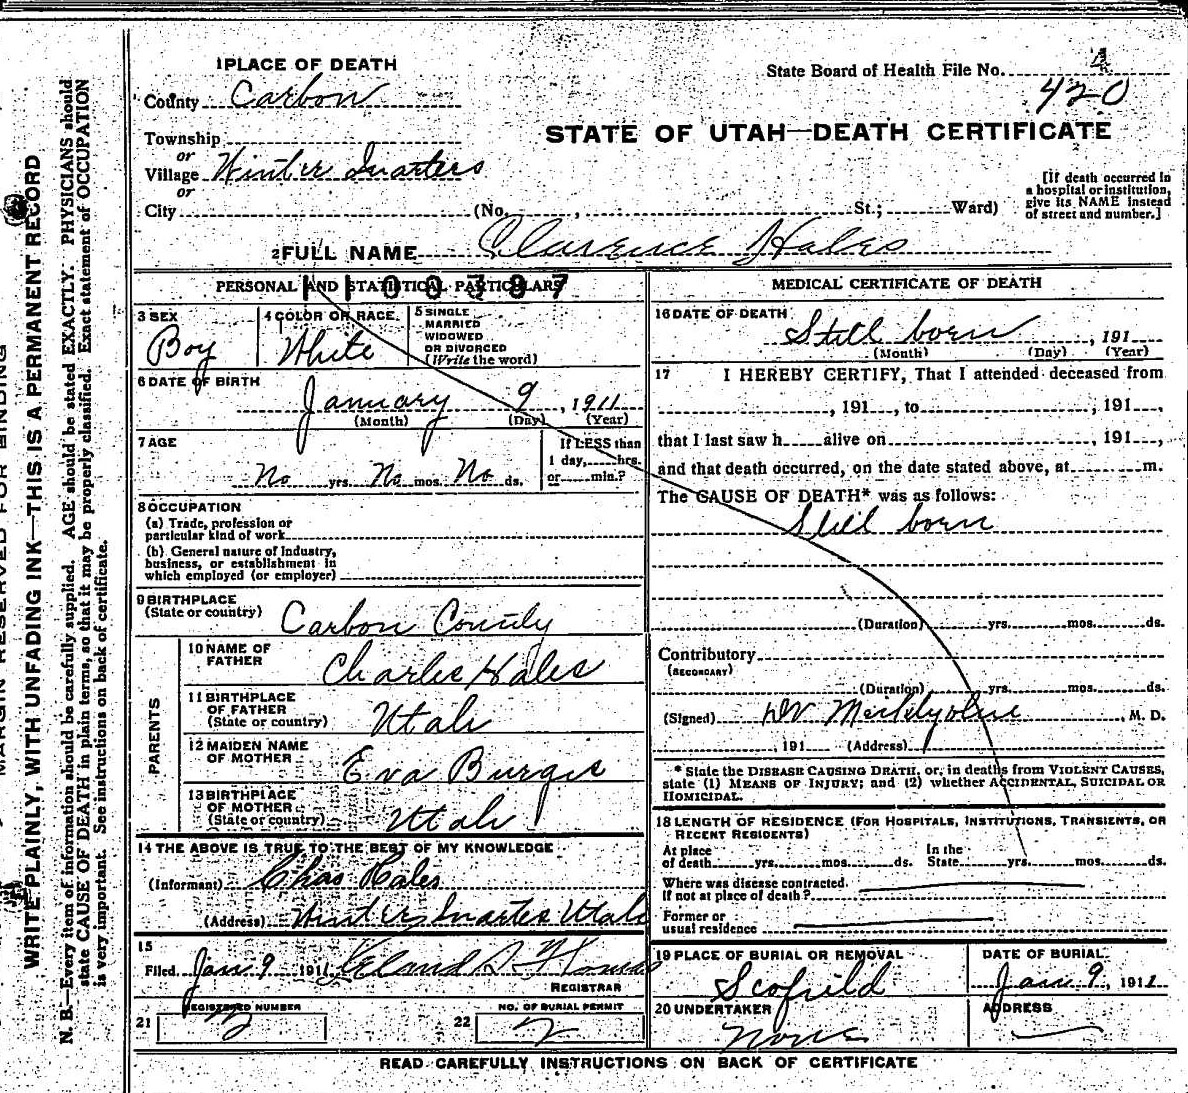 1 PLACE OF DEATH
State Board of Health File No. 4
County Carbon
420
STATE OF UTAH—DEATH CERTIFICATE
Township
or
Village Winter Quarters
or
City (No. , St.; Ward)
[If death occurred in
a hospital or institution,
give its NAME instead
of street and number.]
2 FULL NAME Clarence Hales
PERSONAL AND STATISTICAL PARTICULARS
1100387
3 SEX
Boy
4 COLOR OR RACE
White
5 SINGLE
MARRIED
WIDOWED
OR DIVORCED
(Write the word)
6 DATE OF BIRTH
January 9, 1911
(Month) (Day) (Year)
7 AGE
No yrs. No mos. No ds.
If LESS than
1 day, hrs.
or min.?
8 OCCUPATION
(a) Trade, profession or
particular kind of work
(b) General nature of industry,
business, or establishment in
which employed (or employer)
9 BIRTHPLACE
(State or country) Carbon County
PARENTS
10 NAME OF
FATHER Charles Hales
11 BIRTHPLACE
OF FATHER
(State or country) Utah
12 MAIDEN NAME
OF MOTHER Eva Burgis
13 BIRTHPLACE
OF MOTHER
(State or country) Utah
14 THE ABOVE IS TRUE TO THE BEST OF MY KNOWLEDGE
(Informant) Chas Hales
(Address) Winter Quarters Utah
15
Filed Jan 9 1911
REGISTRAR
REGISTERED NUMBER
21 2
NO. OF BURIAL PERMIT
22 2
MEDICAL CERTIFICATE OF DEATH
16 DATE OF DEATH
Still born, 191
(Month) (Day) (Year)
17 I HEREBY CERTIFY, That I attended deceased from
, 191 , to , 191 ,
that I last saw h alive on , 191 ,
and that death occurred, on the date stated above, at m.
The CAUSE OF DEATH* was as follows:
Still born
(Duration) yrs. mos. ds.
Contributory
(SECONDARY)
(Duration) yrs. mos. ds.
(Signed) , M. D.
191 (Address)
* State the DISEASE CAUSING DEATH, or, in deaths from VIOLENT CAUSES,
state (1) MEANS OF INJURY; and (2) whether ACCIDENTAL, SUICIDAL OR
HOMICIDAL.
18 LENGTH OF RESIDENCE (FOR HOSPITALS, INSTITUTIONS, TRANSIENTS, OR
RECENT RESIDENTS)
At place
of death yrs. mos. ds.
In the
State yrs. mos. ds.
Where was disease contracted.
If not at place of death?
Former or
usual residence
19 PLACE OF BURIAL OR REMOVAL
Scofield
DATE OF BURIAL
Jan 9, 1911
20 UNDERTAKER
None
ADDRESS
READ CAREFULLY INSTRUCTIONS ON BACK OF CERTIFICATE
MARGIN RESERVED FOR BINDING
WRITE PLAINLY, WITH UNFADING INK—THIS IS A PERMANENT RECORD
N. B.—Every item of information should be carefully supplied. AGE should be stated EXACTLY. PHYSICIANS should
state CAUSE OF DEATH in plain terms, so that it may be properly classified. Exact statement of OCCUPATION
is very important. See instructions on back of certificate.